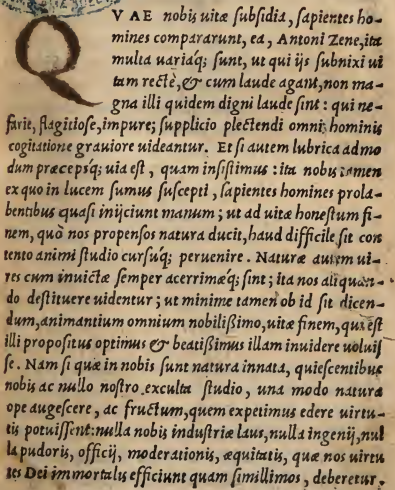 QVAE nobis uitæ ſubſidia, ſapientes ho-
mines compararunt, ea, Antoni Zene, ita
multa uariaq́; ſunt, ut qui ijs ſubnixi ui
tam rectè, & cum laude agant, non ma-
gna illi quidem digni laude ſint: qui ne-
farie, flagitioſe, impure; ſupplicio plectendi omni hominis
cogitatione grauiore uideantur. Et ſi autem lubrica admo
dum præcepsq́; uia eſt, quam inſiſtimus: ita nobis tamen
ex quo in lucem ſumus ſuſcepti, ſapientes homines prola-
bentibus quaſi inijciunt manum; ut ad uitæ honeſtum fi-
nem, quò nos propenſos natura ducit, haud difficile ſit con
tento animi ſtudio curſuq́; peruenire. Naturæ autem ui-
res cum inuictæ ſemper acerrimæq́; ſint; ita nos aliquan-
do deſtituere uidentur; ut minime tamen ob id ſit dicen-
dum, animantium omnium nobiliſsimo, uitæ finem, qui eſt
illi propoſitus optimus & beatiſsimus illam inuidere uoluiſ
ſe. Nam ſi quæ in nobis ſunt natura innata, quieſcentibus
nobis ac nullo noſtro exculta ſtudio, una modo naturæ
ope augeſcere, ac fructum, quem expetimus edere uirtu-
tis potuiſſent: nulla nobis induſtriæ laus, nulla ingenij, nul
la pudoris, officij, moderationis, æquitatis, quæ nos uirtu
tes Dei immortalis efficiunt quam ſimillimos, deberetur.